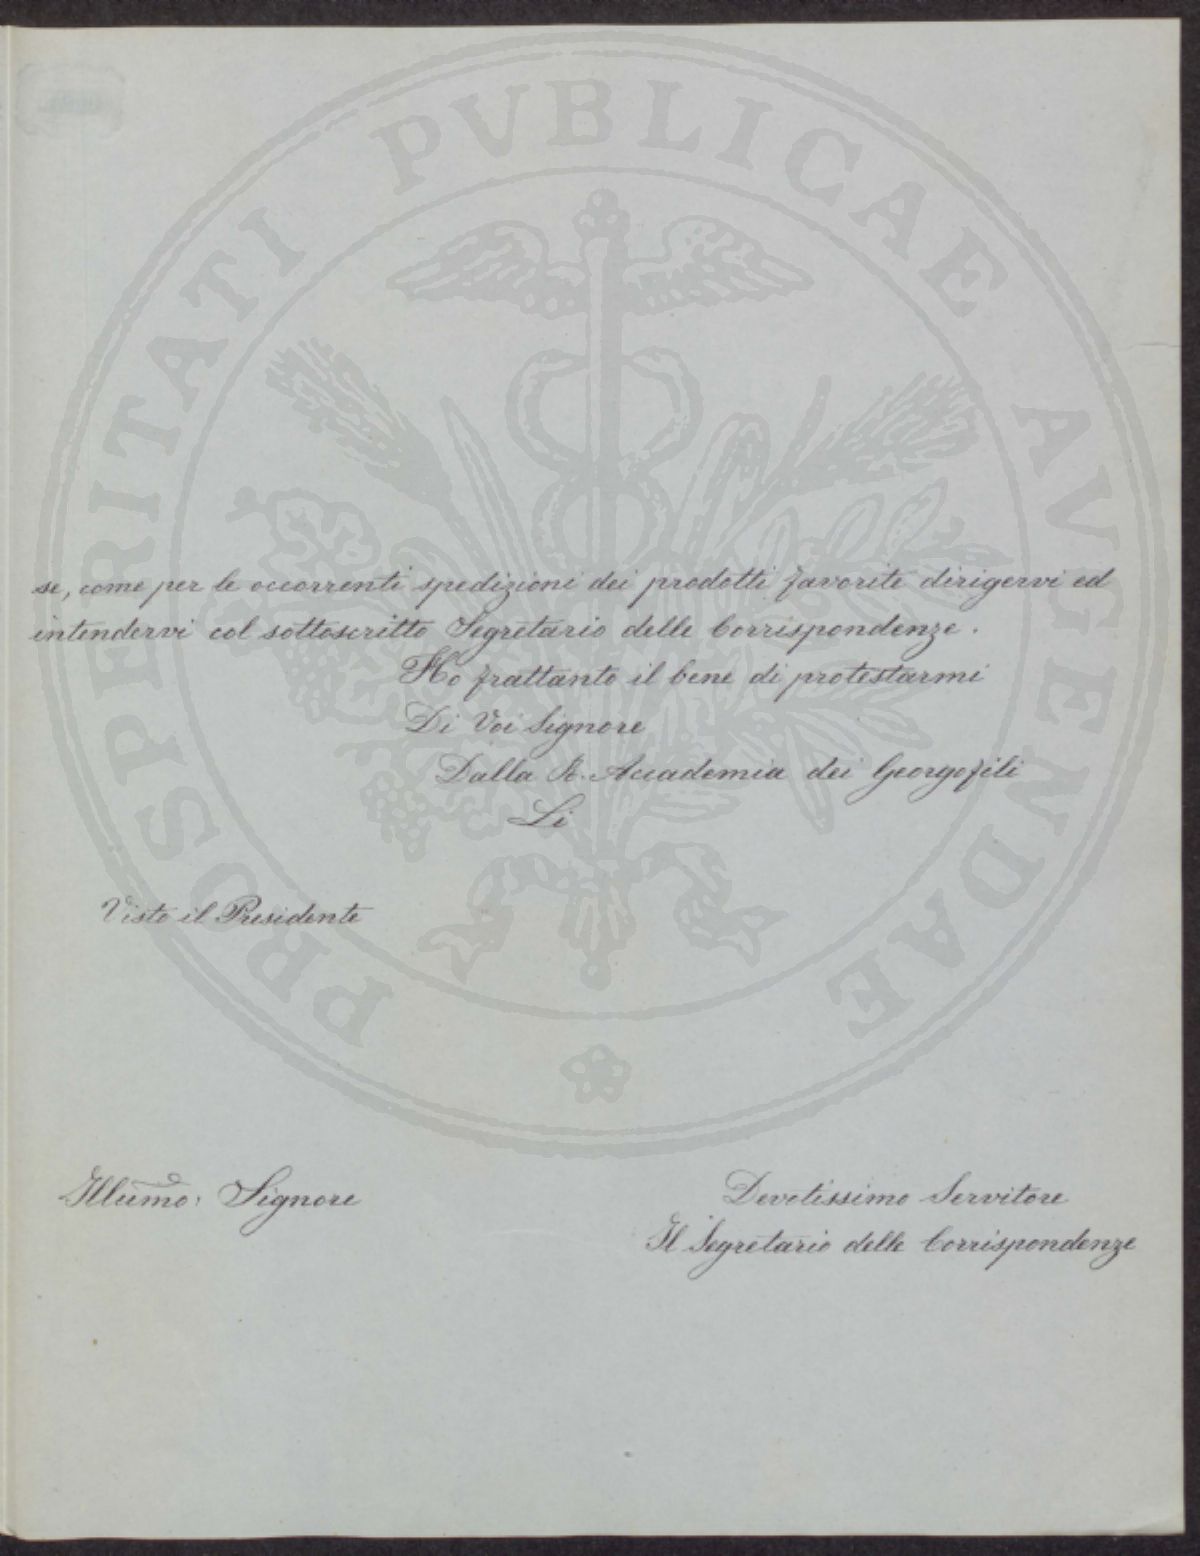 PROSPERITATI PVBLICAE AVGENDAE
se, come per le occorrenti spedizioni dei prodotti favorite dirigervi ed
intendervi col sottoscritto Segretario delle Corrispondenze.
Ho frattanto il bene di protestarmi
Di Voi Signore
Dalla R. Accademia dei Georgofili
Li
Visto il Presidente
Illumo: Signore
Devotissimo Servitore
Il Segretario delle Corrispondenze